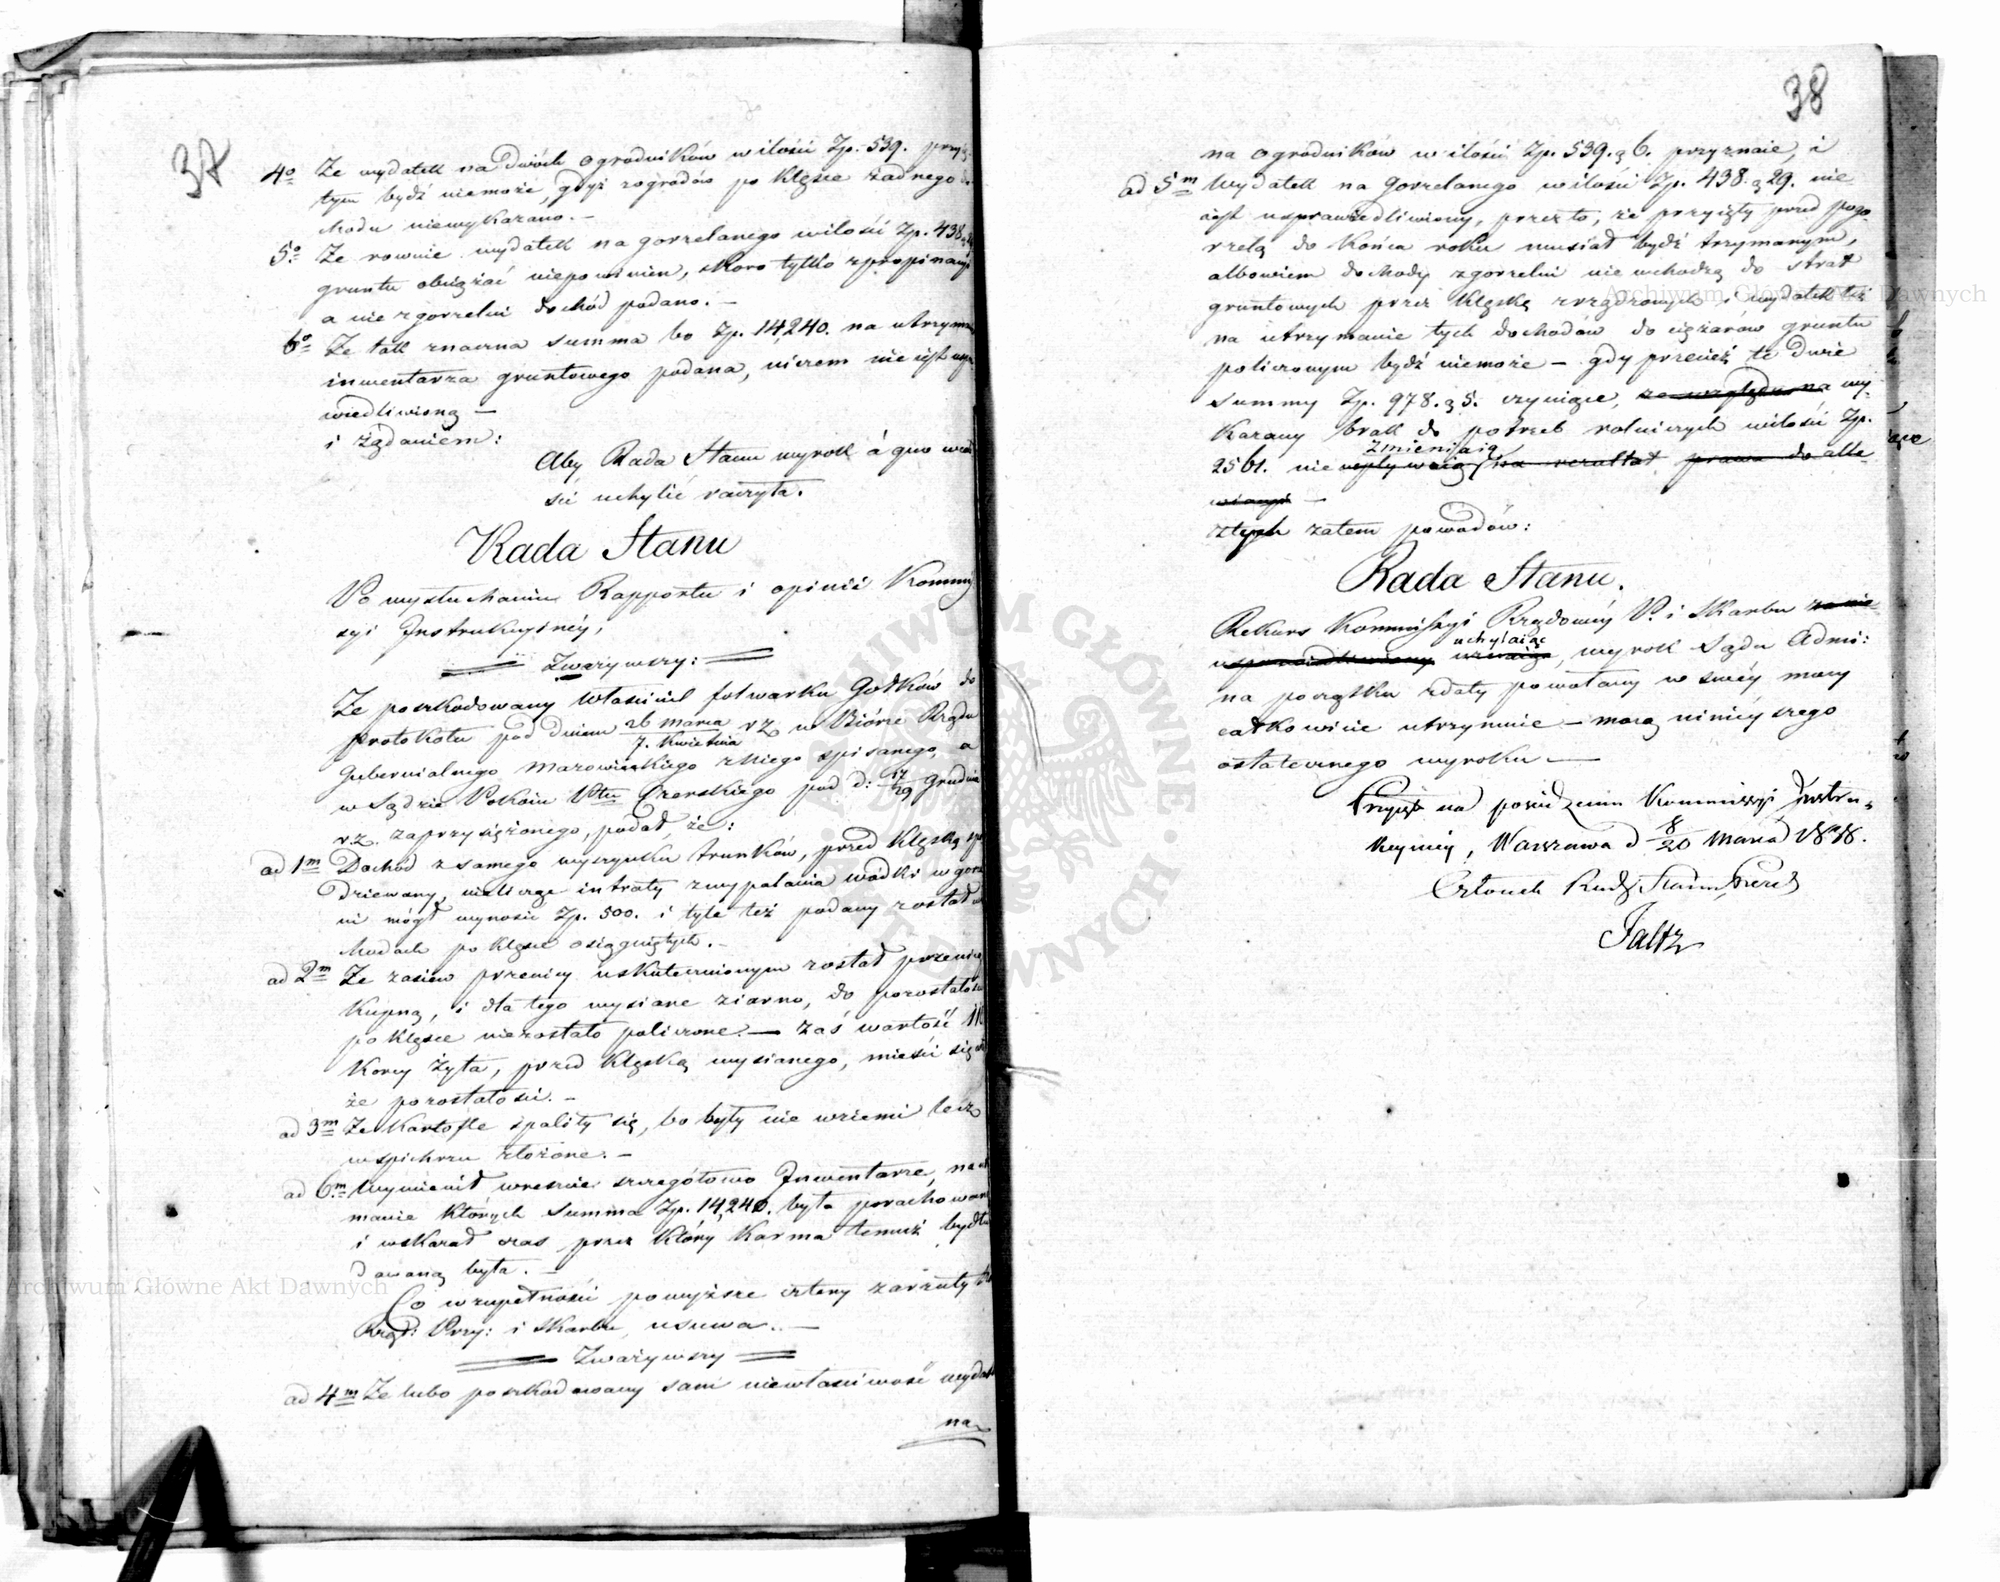 37
4o Że wydatek na dwóch ogrodników w ilości Zp. 539. przyię-
tym bydź niemoże, gdyż z ogrodów po klęsce żadnego do
chodu niewykazano. –
5o Że rownie wydatek na gorzelanego wilości Zp. 438
gruntu obciążać niepowinien, skoro tylko z propinacyi
a nie z gorzelni dochód podano. –
6o Że tak znaczna summa bo Zp. 14,240. na utrzyma
inwentarza gruntowego podana, niczem nie iest uspra
wiedliwioną –
i żądaniem:
Aby Rada Stanu wyrok á quo w cało
ści uchylić raczyła.
Rada Stanu
Po wysłuchaniu Rapportu i opinii Kommis
syi Instrukcyinéy,
Zważywszy:
Że poszkodowany właściciel folwarku Gołków do
protokołu pod dniem 26 marca / 7. Kwietnia r z. w Biórze Rządu
Gubernialnego Mazowieckiego z Niego spisanego, a
w Sądzie Pokoiu Ptu Czerskiego pod d: 17/29 Grudnia
r.z. zaprzysiężonego, podał, że:
ad 1m Dochód z samego wyszynku trunków, przed klęską spo
dziewany, nielicząc intraty z wypalania wódki w gorzel
ni mógł wynosić Zp. 500. i tyle też podany został w
chodach po klęsce osiągniętych. –
ad 2m Że zasiew pszenicy uskutecznionym został pszenicą
kupną, i dla tego wysiane ziarno, do pozostałości
po klęsce niezostało policzone. – zaś wartość 11
korcy żyta, przed klęską wysianego, mieści się w
że pozostałości. –
ad 3m Że kartofle spaliły się, bo były nie wziemi lecz
w spichrzu złożone. –
ad 6m Wymienił wreszcie szczegółowo Inwentarze, na utrzy
manie których summa Zp. 14,240. była porachowana
i wskazał czas przez który karma temuż bydłu
dawaną była. –
Co w zupełności powyższe cztery zarzuty Ko
Rząd: Przy: i Skarbu, usuwa. –
Zważywszy
ad 4m Że lubo poszkodowany sam niewłaściwość wydatku
na
38
na ogrodników w ilości Zp. 539. g 6. przyznaie, i
ad 5m Wydatek na gorzelanego wilości Zp. 438. g 29. nie
iest usprawiedliwiony, przez to, że przyięty przed pogo-
rzelą do końca roku musiał bydź trzymanym,
albowiem dochody z gorzelni nie wchodzą do strat
gruntowych przez klęskę zrządzonych i wydatek też
na utrzymanie tych dochodów do ciężarów gruntu
policzonym bydź niemoże – gdy przecież te dwie
summy Zp. 978. g 5. czyniące, ze względu na wy-
kazany brak do potrzeb rolniczych wilości Zp.
zmieniaią
2561. nie wpływaią na rezultat prawa do alle
wiacyi –
z tych zatem powodów:
Rada Stanu.
Rekurs Kommissyi Rządowéy P. i Skarbu za nie
uchylaiąc
usprawiedliwiony uznaiąc, wyrok Sądu Admi:
na początku z daty powołany w swéy mocy
całkowicie utrzymuie – mocą ninieyszego
ostatecznego wyroku –
Przyięto na posiedzeniu Kommissyi Instru-
kcyinéy, Warszawa d 8/20 Marca 1848.
Członek Rady Stanu, Prezes
Faltz